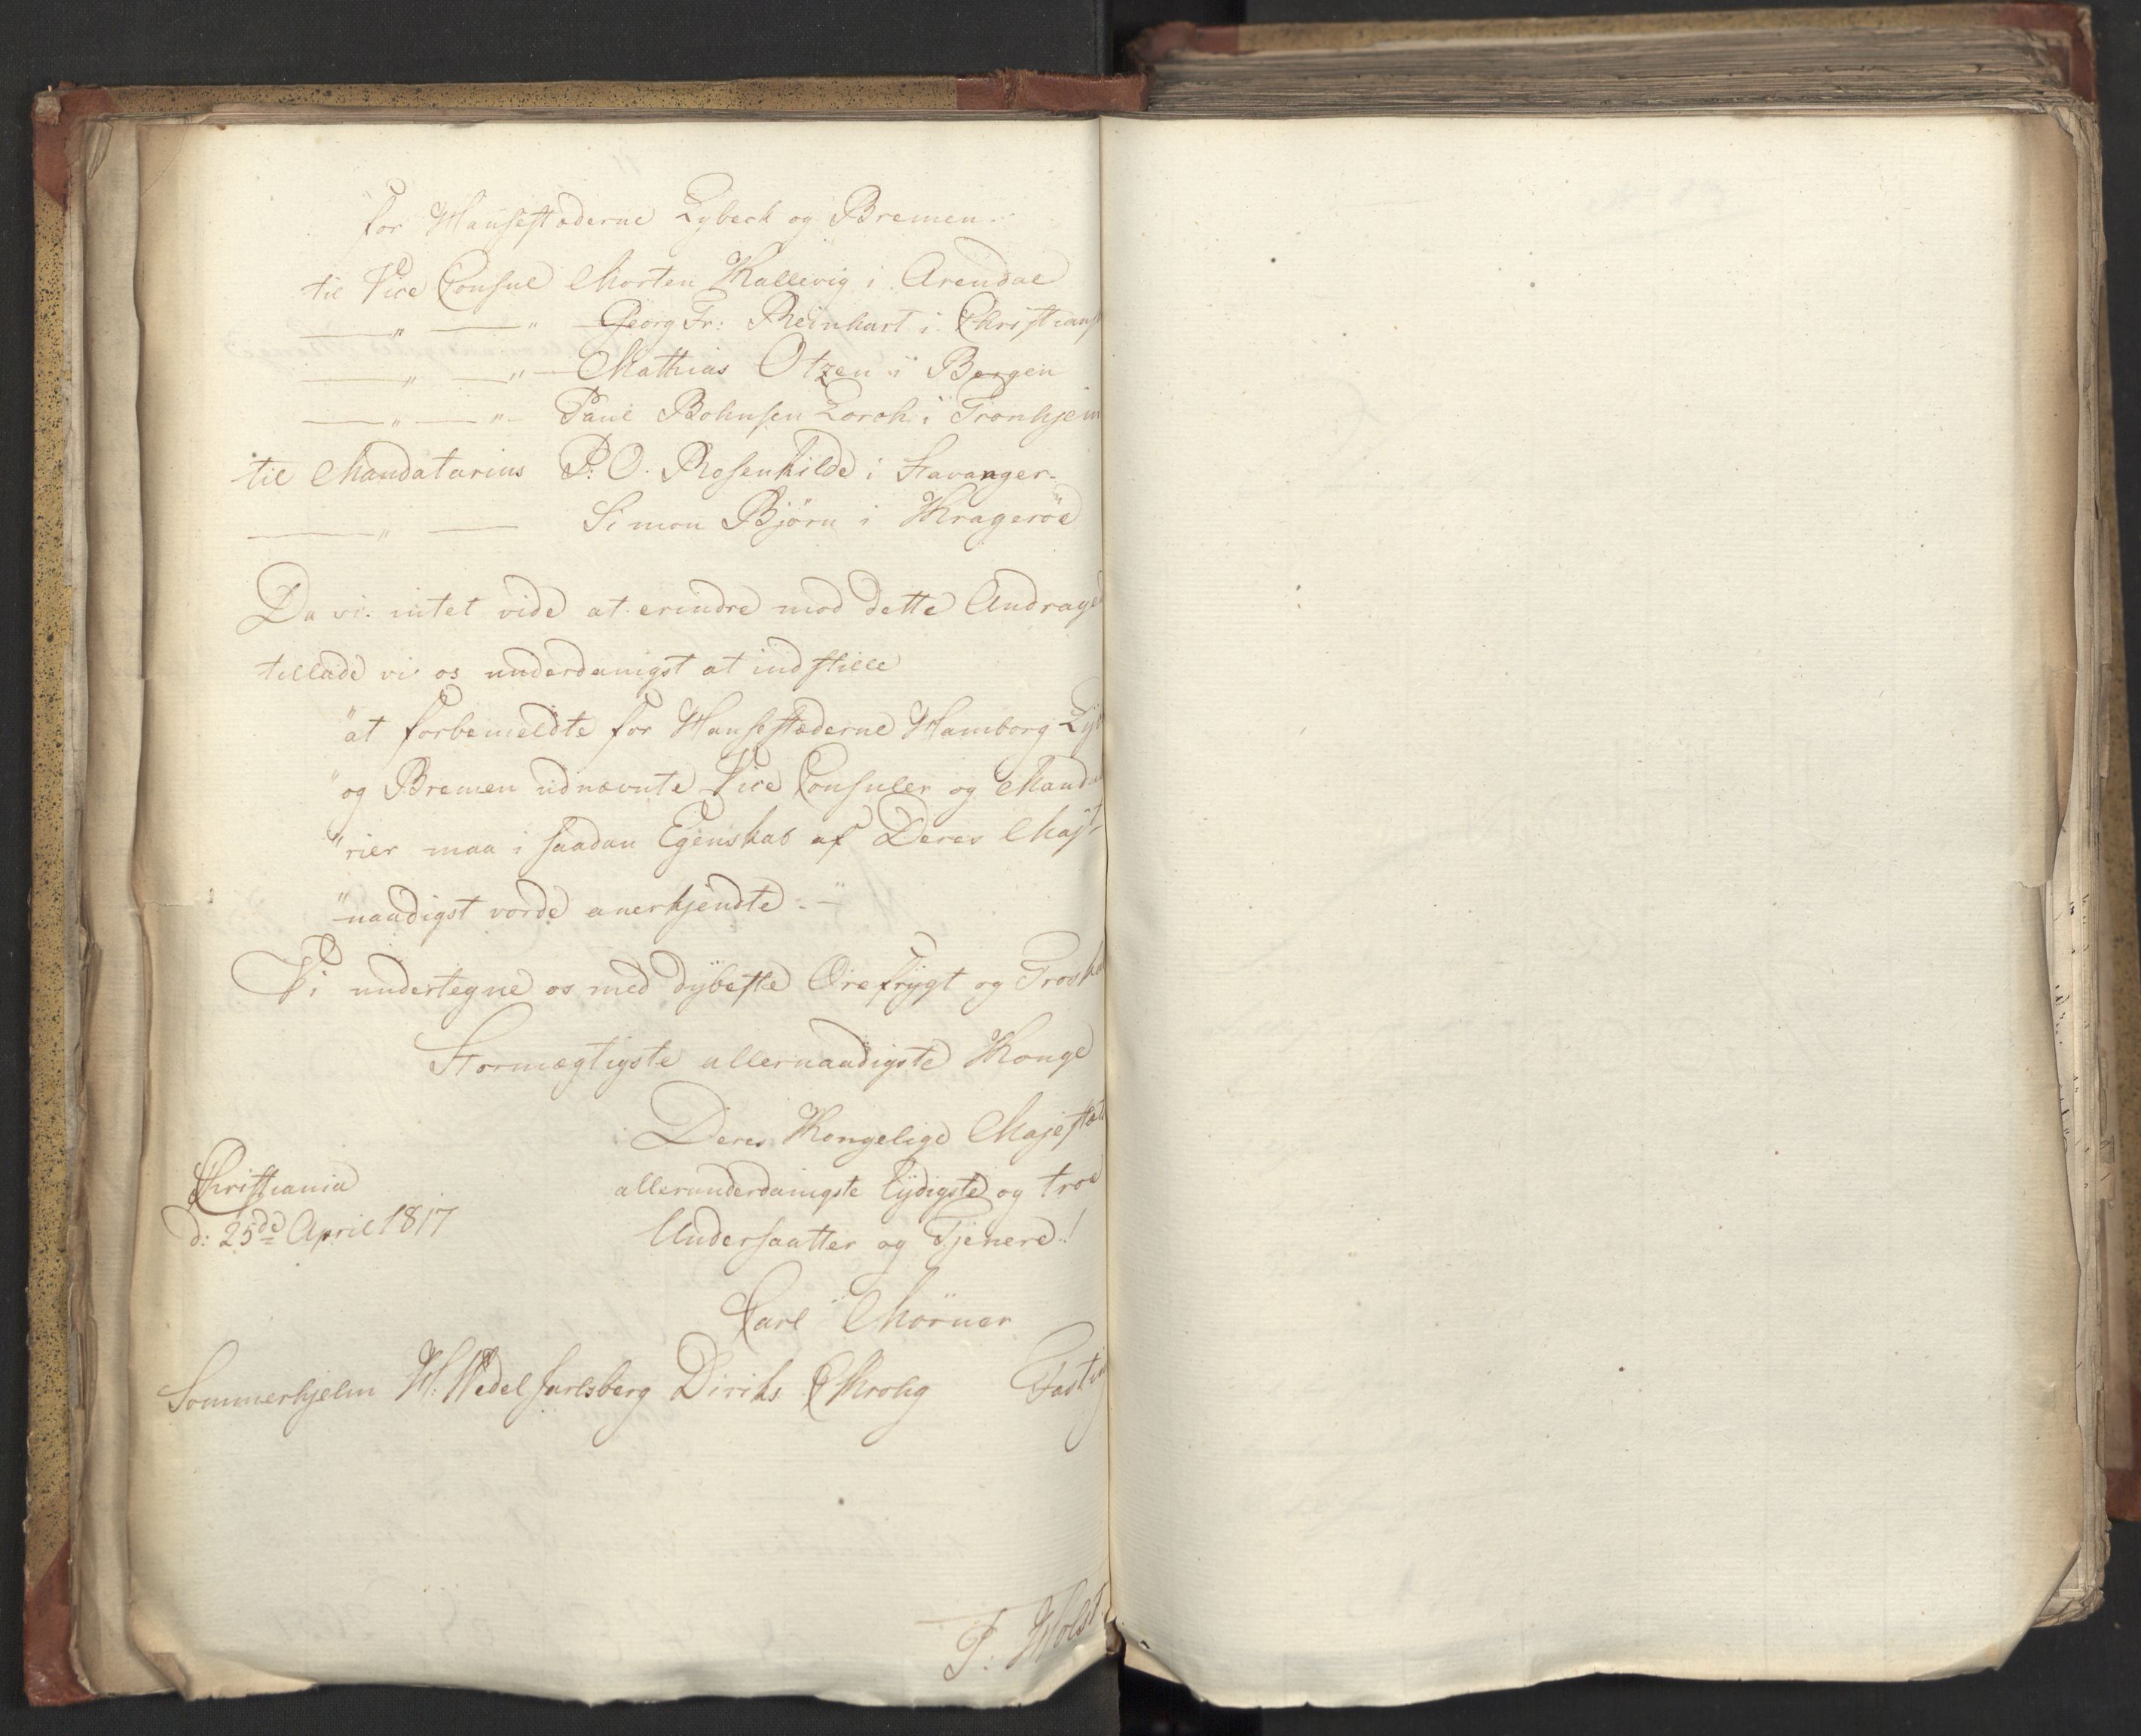 for Hansestæderne Lybeck og Bremen
til Vice Consul Morten Kallevig i Arendal
— " — " — Georg Fr: Reinhart i Christians
— " — " — Mathias Otzen i Bergen
— " — " — Paul Bohnsen Lorck i Tronhjem
til Mandatarius P. O. Rosenkilde i Stavanger.
— " — Simon Bjørn i Krageröe
Da vi intet vide at erindre mod dette Andrage
tillade vi os underdanigst at indstille
"at forbemeldte for Hansestæderne Hamborg Lyb
"og Bremen udnævnte Vice Consuler og Manda
"rier maa i saadan Egenskab af Deres Majt
"naadigst vorde anerkjendte. —"
Vi undertegne os med dybeste Ærefrygt og Troska
Stormægtigste allernaadigste Konge
Deres Kongelige Majestæts
Christiania
d: 25de April 1817
allerunderdanigste lydigste og troe
Undersaatter og Tjenere!
Carl Mörner
Sommerhjelm H. Wedel Jarlsberg Diriks Krohg Fasting
T. Holst